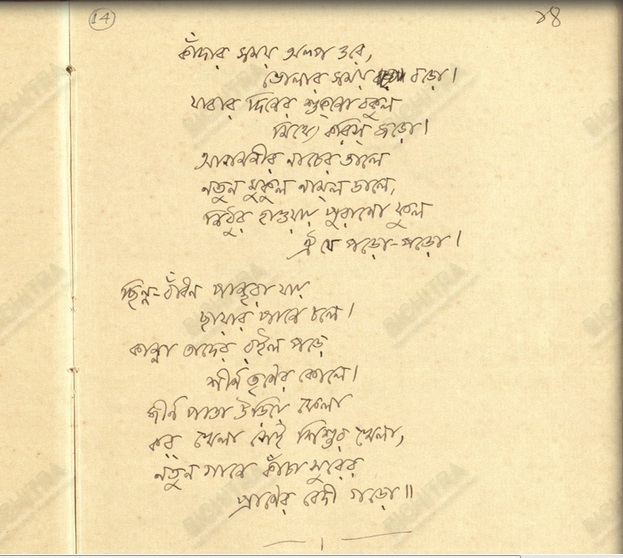 (14)
১৪
কাঁদার সময় অল্প ওরে,
ভোলার সময় বড়ো।
যাবার দিনের শুকনো বকুল
মিথ্যে করিস জড়ো।
আগমনীর নাচের তালে
নতুন মুকুল নামল ডালে,
নিঠুর হাওয়ায় পুরানো ফুল
ঐ যে পড়ো-পড়ো।
ছিন্ন-বাঁধন পান্থরা যায়
ছায়ার পানে চলে।
কান্না তাদের রইল পড়ে
শীর্ণ তৃণের কোলে।
জীর্ণ পাতা উড়িয়ে ফেলা
কর্ খেলা সেই শিশুর খেলা,
নতুন গানে কাঁচা সুরের
প্রাণের বেদী গড়ো॥
BICHITRA